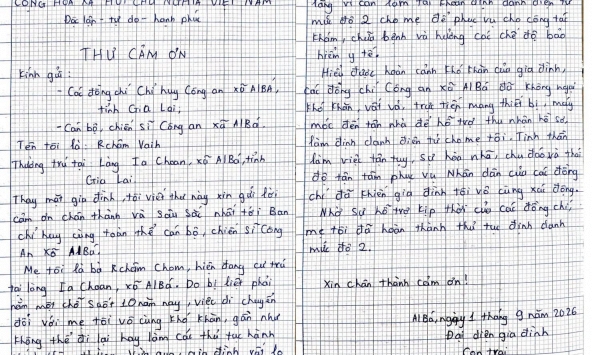 CỘNG HÒA XÃ HỘI CHỦ NGHĨA VIỆT NAM
Độc lập - tự do - hạnh phúc
THƯ CẢM ƠN
Kính gửi :
- Các đồng chí Chỉ huy Công an xã AlBá,
tỉnh Gia Lai,
- Cán bộ, chiến sĩ Công an xã AlBá.
Tên tôi là : Rchăm Vaih
Thường trú tại Làng Ia Choan, xã AlBá, tỉnh
Gia Lai.
Thay mặt gia đình, tôi viết thư này xin gửi lời
cảm ơn chân thành và sâu sắc nhất tới Ban
chỉ huy cùng toàn thể cán bộ, chiến sĩ Công
An xã AlBá.
Mẹ tôi là bà Rchăm Chom, hiện đang cư trú
tại làng Ia Choan, xã AlBá. Do bị liệt phải
nằm một chỗ suốt 10 năm nay, việc di chuyển
đối với mẹ tôi vô cùng khó khăn, gần như
không thể đi lại hay làm các thủ tục hành
gia đình rất lo
lắng vì cần làm tài khoản định danh điện tử
mức độ 2 cho mẹ để phục vụ cho công tác
khám, chữa bệnh và hưởng các chế độ bảo
hiểm y tế.
Hiểu được hoàn cảnh khó khăn của gia đình,
các đồng chí Công an xã AlBá đã không ngại
khó khăn, vất vả, trực tiếp mang thiết bị, máy
móc đến tận nhà để hỗ trợ thu nhận hồ sơ,
làm định danh điện tử cho mẹ tôi. Tinh thần
làm việc tận tụy, sự hòa nhã, chu đáo và thái
độ tận tâm phục vụ Nhân dân của các đồng
chí đã khiến gia đình tôi vô cùng xúc động.
Nhờ sự hỗ trợ kịp thời của các đồng chí,
mẹ tôi đã hoàn thành thủ tục định danh
mức độ 2.
Xin chân thành cảm ơn !
AlBá, ngày 1 tháng 9 năm 2026
Đại diện gia đình
Con trai